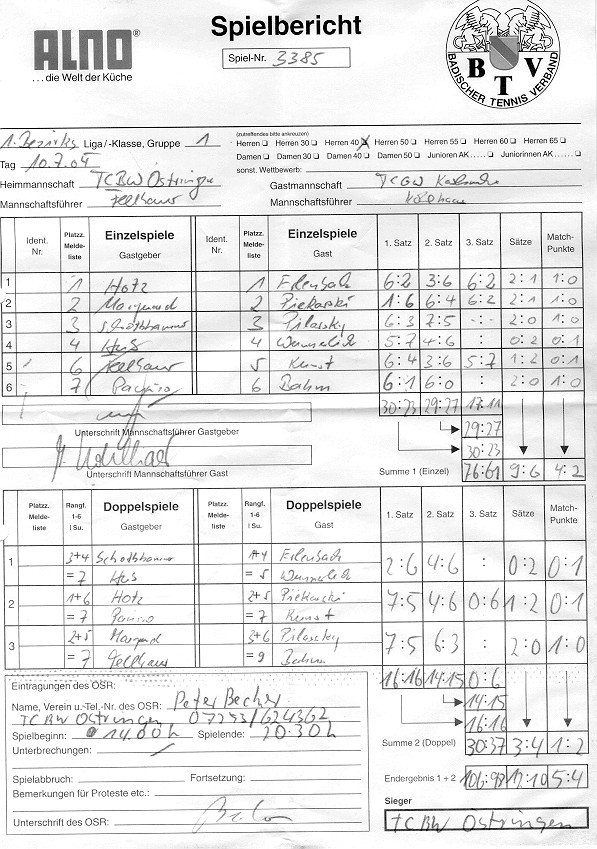 ALNO®
...die Welt der Küche
Spielbericht
Spiel-Nr. 3385
BTV
BADISCHER TENNIS VERBAND
1. Bezirks Liga/-Klasse, Gruppe 1
(zutreffendes bitte ankreuzen)
Herren ❑ Herren 30 ❑ Herren 40 ☒ Herren 50 ❑ Herren 55 ❑ Herren 60 ❑ Herren 65 ❑
Damen ❑ Damen 30 ❑ Damen 40 ❑ Damen 50 ❑ Junioren AK..... ❑ Juniorinnen AK...... ❑
Tag 10.7.04
sonst. Wettbewerb:
Heimmannschaft TCBW Östringen
Gastmannschaft TCGW Karlsruhe
Mannschaftsführer Fellhauer
Mannschaftsführer
Ident. Nr. Platzz. Melde-liste Einzelspiele Gastgeber Ident. Nr. Platzz. Melde-liste Einzelspiele Gast 1. Satz 2. Satz 3. Satz Sätze Match-Punkte
1 1 Hotz 1 Erlenbach 6:2 3:6 6:2 2:1 1:0
2 2 2 Piekarski 1:6 6:4 6:2 2:1 1:0
3 3 3 Pilarsky 6:3 7:5 -:- 2:0 1:0
4 4 Hus 4 5:7 4:6 : 0:2 0:1
5 6 Fellhauer 5 Kunst 6:4 3:6 5:7 1:2 0:1
6 7 6 Bahm 6:1 6:0 : 2:0 1:0
30:23 29:27 17:11
Unterschrift Mannschaftsführer Gastgeber
29:27
30:23
Unterschrift Mannschaftsführer Gast
Summe 1 (Einzel) 76:61 9:6 4:2
Platzz. Melde-liste Rangf. 1-6 I Su. Doppelspiele Gastgeber Platzz. Melde-liste Rangf. 1-6 I Su. Doppelspiele Gast 1. Satz 2. Satz 3. Satz Sätze Match-Punkte
1 3+4 1+4 Erlenbach 2:6 4:6 : 0:2 0:1
=7 Hus =5
2 1+6 Hotz 2+5 Piekarski 7:5 4:6 0:6 1:2 0:1
=7 =7 Kunst
3 2+5 3+6 Pilarsky 7:5 6:3 : 2:0 1:0
=7 Fellhauer =9 Bahm
16:16 14:15 0:6
14:15
16:16
Eintragungen des OSR:
Name, Verein u.-Tel.-Nr. des OSR: Peter Becher
TCBW Östringen 07253/624362
Spielbeginn: 14.00h Spielende: 20.30h
Summe 2 (Doppel) 30:37 3:4 1:2
Unterbrechungen:
Spielabbruch: Fortsetzung:
Endergebnis 1 + 2 106:98 12:10 5:4
Bemerkungen für Proteste etc.:
Sieger
TCBW Östringen
Unterschrift des OSR: